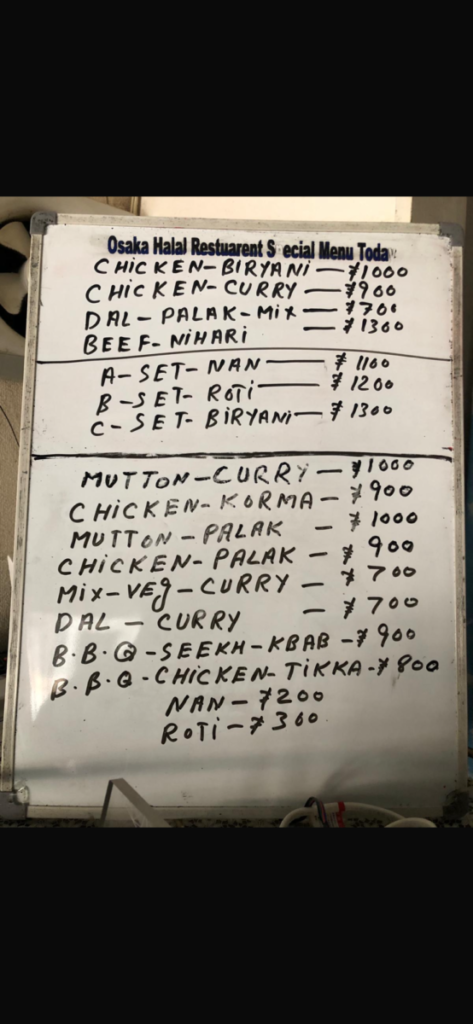 Osaka Halal Restuarent S ecial Menu Today
CHiCKEN-BIRYANi — ¥1000
CHiCKEN-CURRY — ¥900
DAL - PALAK-Mix — ¥700
BEEF-NiHARi — ¥1300
A-SET-NAN — ¥ 1100
B-SET-ROTi — ¥ 1200
C-SET-BiRYANi — ¥ 1300
MUTTON-CURRY — ¥1000
CHiCKEN-KORMA — ¥900
MUTTON-PALAK — ¥1000
CHiCKEN-PALAK — ¥900
Mix-VEg-CURRY — ¥700
DAL - CURRY — ¥700
B.B.Q-SEEKH-KBAB - ¥900
B.B.Q-CHiCKEN-TiKKA-¥800
NAN - ¥200
ROTi - ¥300